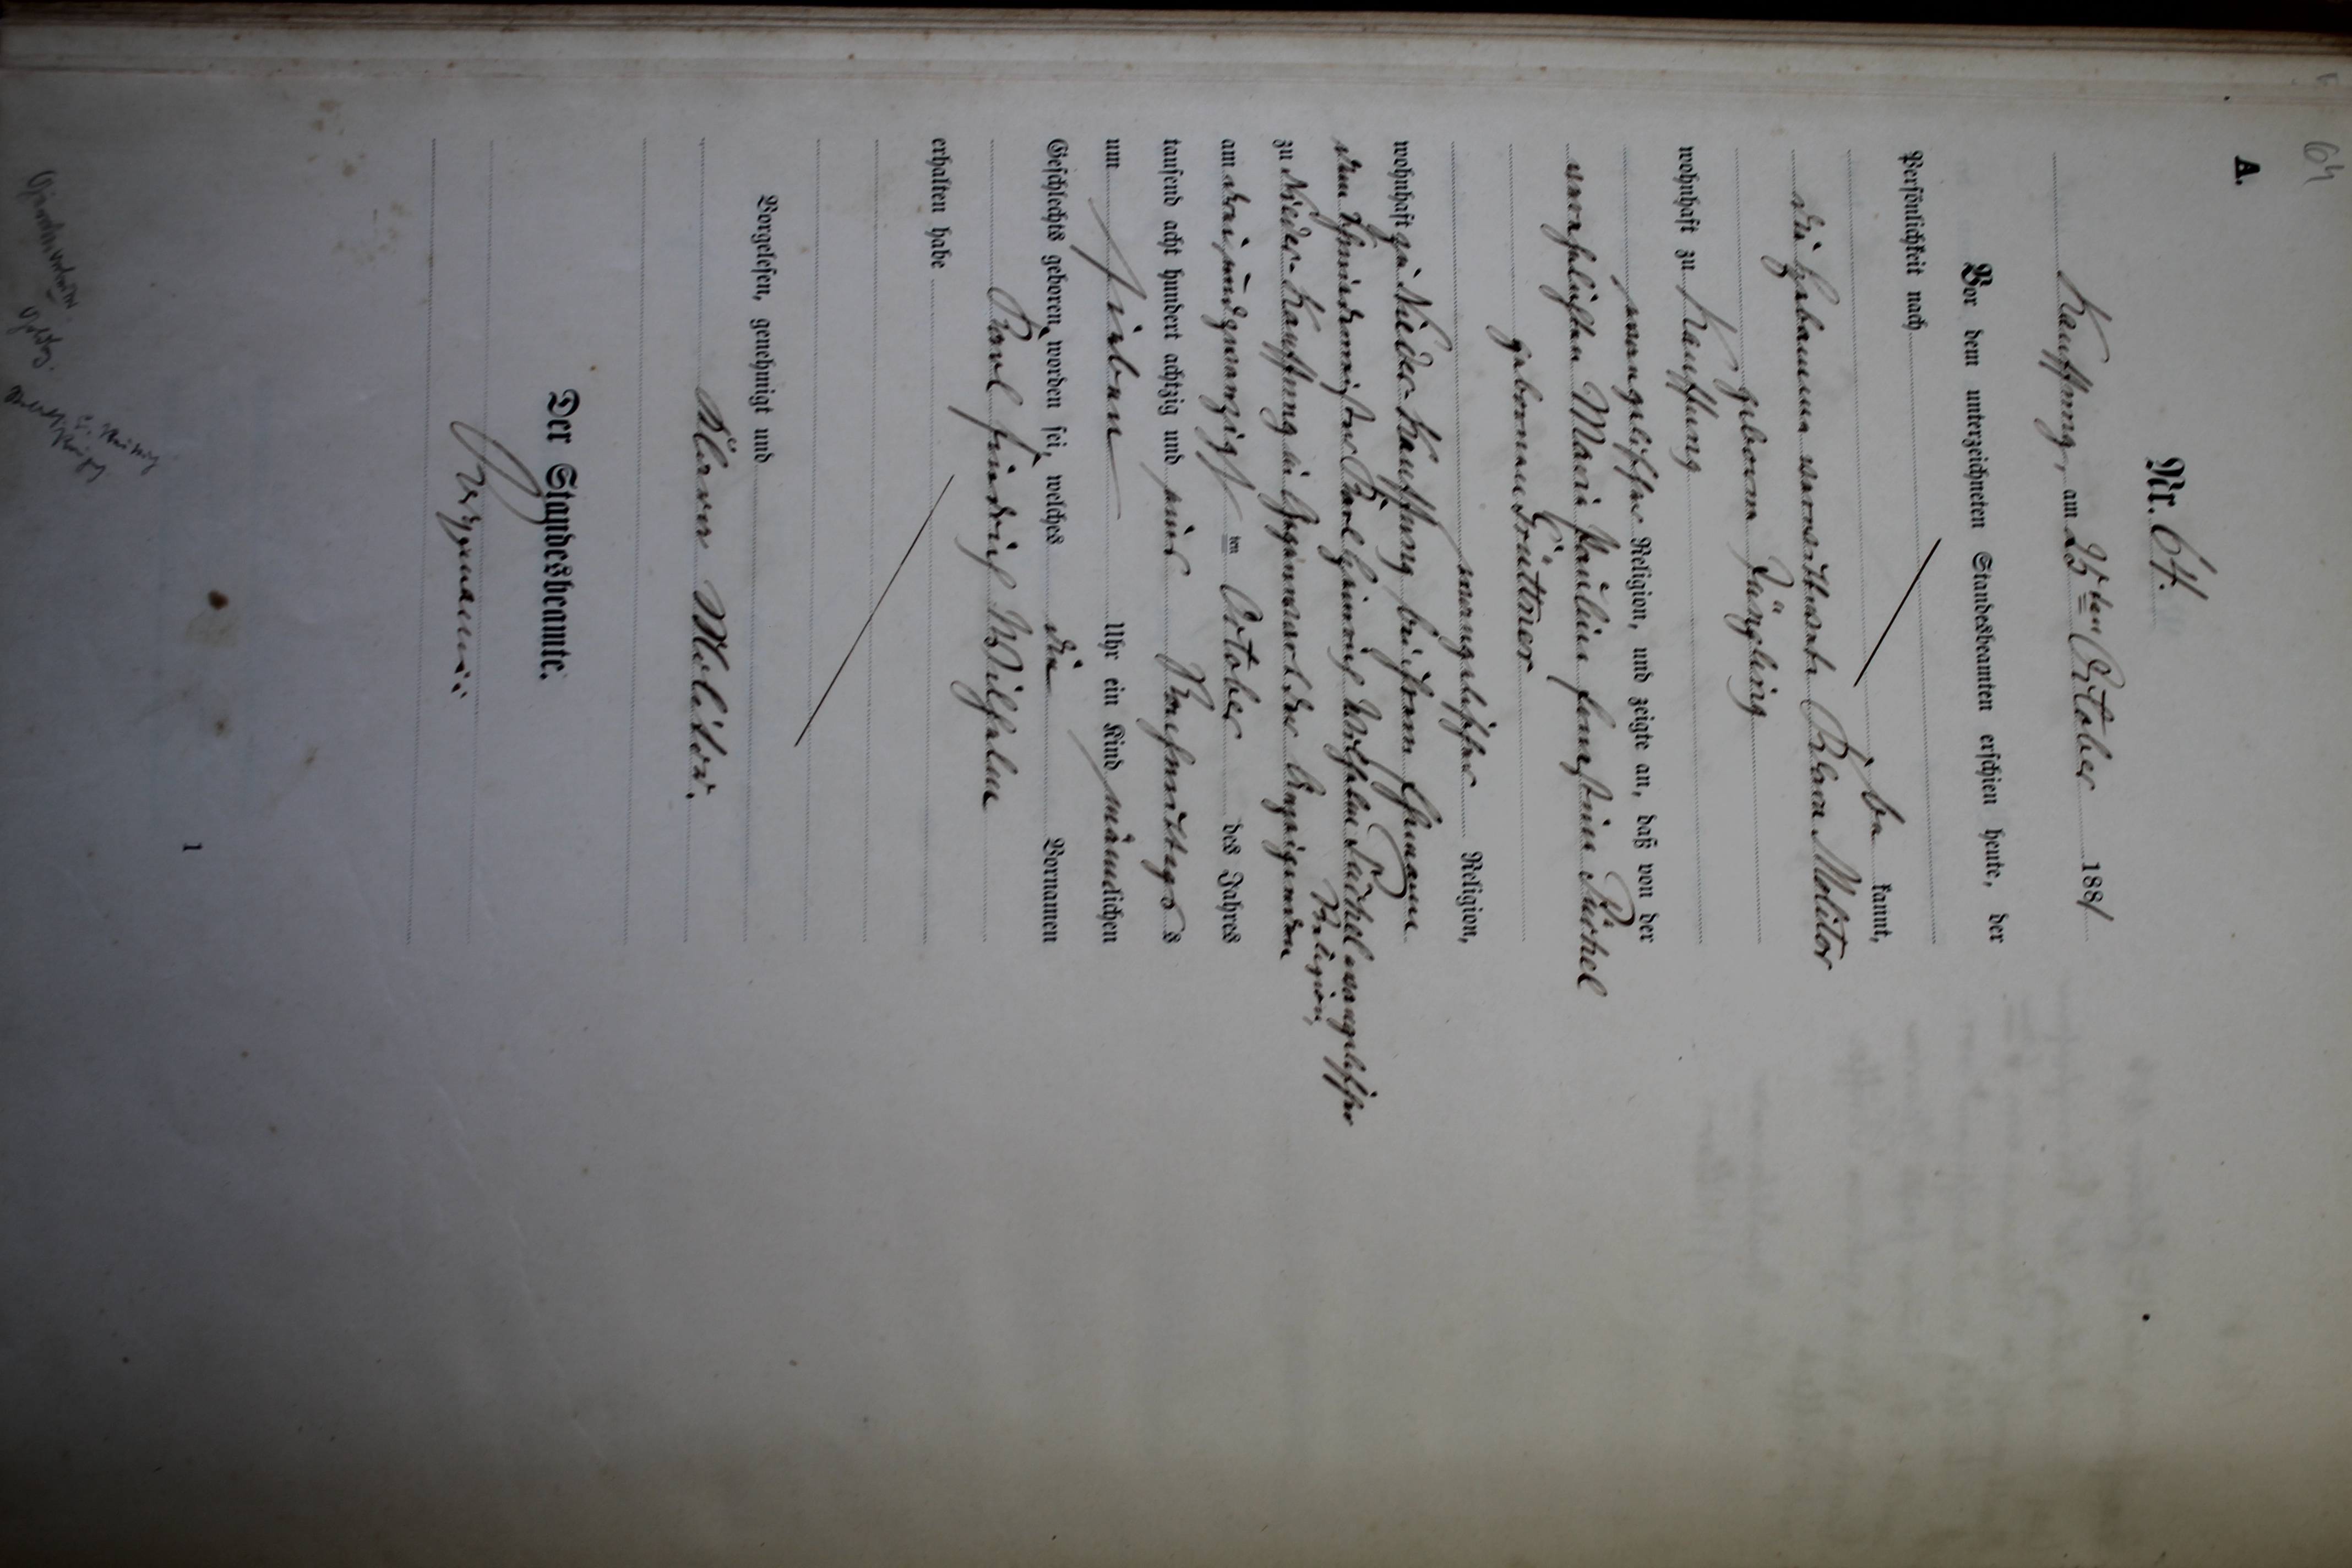 64
A.
Nr. 64.
Kauffung, am 25ten October 1881
Vor dem unterzeichneten Standesbeamten erschien heute, der
Persönlichkeit nach
be kannt,
die Hebamme verwittwete Klara Molitor
geborene Jüngling
wohnhaft zu Kauffung
evangelischer Religion, und zeigte an, daß von der
verehelichten Marie Pauline Ernestine Püschel
geborenen Grüttner
evangelischer Religion,
wohnhaft zu Nieder-Kauffung bei ihrem Ehemann
dem Schmiedemeister Karl Heinrich Wilhelm Püschel evangelischer
Religion,
zu Nieder-Kauffung in Gegenwart der Anzeigenden
am dreiundzwanzigsten ten October des Jahres
tausend acht hundert achtzig und eins Nachmittags s
um sieben Uhr ein Kind männlichen
Geschlechts geboren worden sei, welches die Vornamen
Paul Friedrich Wilhelm
erhalten habe
Vorgelesen, genehmigt und
Klara Molitor.
Der Standesbeamte.
1